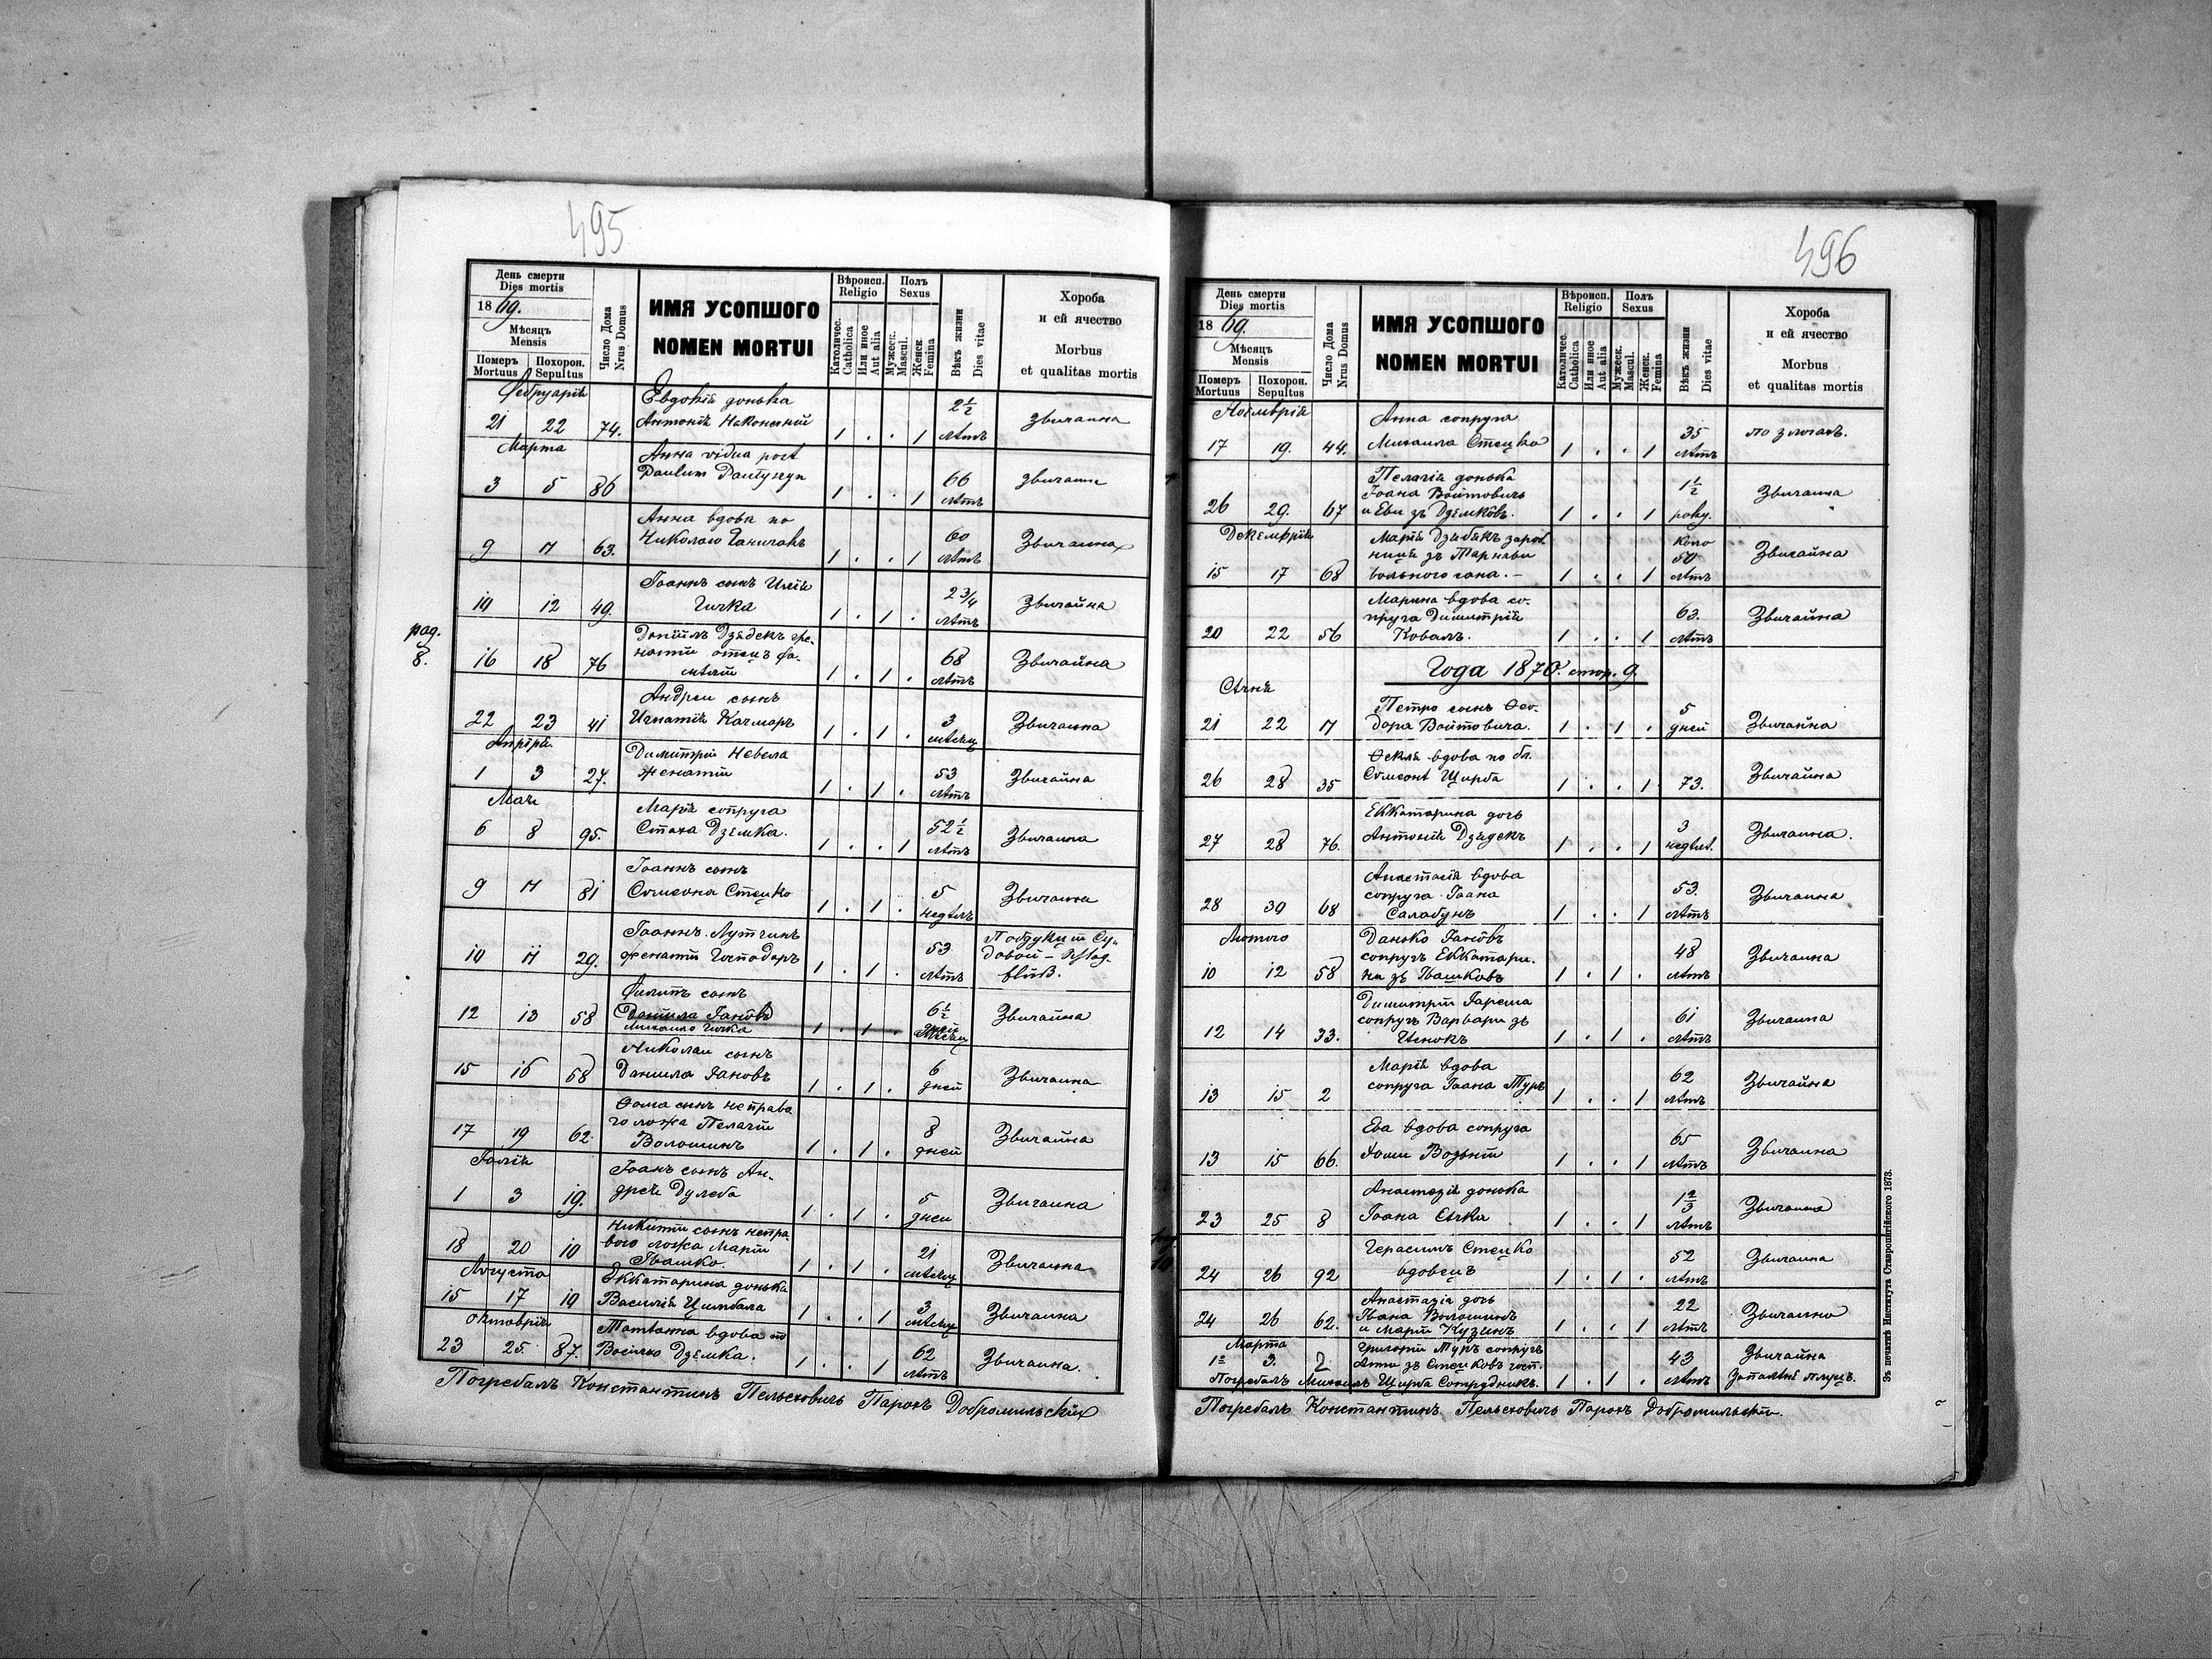 495
День смерти
Dies mortis
1869.
Мѣсяць
Mensis
Померъ
Mortuus
Похорон.
Sepultus
Число Дома
Nrus Domus
ИМЯ УСОПШОГО
NOMEN MORTUI
Вѣроисп.
Religio
Католичес.
Catholica
Или иное
Aut alia
Полъ
Sexus
Мужеск.
Mascul.
Женск.
Femina
Вѣкъ жизни
Dies vitae
Хороба
и ей ячество
Morbus
et qualitas mortis
Февруарій
Евдокія донька
21 22 74. Антонія 1 . . 1 2½ лѣтъ Звичайна
Марта
Анна vidua post
3 5 86 Paulum 1 . . 1 66 лѣтъ Звичайна
Анна вдова по
9 11 63. Николаю 1 . . 1 60 лѣтъ Звичайна
Іоаннъ сынъ Илія
10 12 49. Гичка 1 . 1 . 2 3/4 лѣтъ Звичайна
pag. 8.
Даніилъ Дзядекъ
отецъ фа-
16 18 76 мілій 1 . 1 . 68 лѣтъ Звичайна
Андрей сынъ
22 23 41 Игнатія Качмаръ 1 . 1 . 3 мѣсяц Звичайна
Априрія
Димитрій Невела
1 3 27. женатій 1 . 1 . 53 лѣтъ Звичайна
Мая
Марія супруга
6 8 95. Стаха Дземка. 1 . . 1 52½ лѣтъ Звичайна
Іоаннъ сынъ
9 11 81 Симеона Стецко 1 . 1 . 5 недѣль Звичайна
Іоаннъ Лутчинъ
10 11 29. женатій Господаръ 1 . 1 . 53 лѣтъ
Филипъ сынъ
Даніила Гановъ
12 13 58 Михаило Гичка 1 . 1 . 6½ мѣсяц Звичайна
Николай сынъ
15 16 58 Даниила Гановъ 1 . 1 . 6 дней Звичайна
Фома сынъ неправа
го ложа Пелагіи
17 19 62. Волошинъ 1 . 1 . 8 дней Звичайна
Іюлія
Іоанъ сынъ Ан-
1 3 19. дрея Дулеба 1 . 1 . 5 дней Звичайна
Никитій сынъ непра-
вого ложа Маріи
18 20 10 Івашко. 1 . 1 . 21 мѣсяц Звичайна
Августа
Еккатарина донька
15 17 19 Василія Цимбала 1 . . 1 3 мѣсяц Звичайна
Октоврія
Татіанна вдова по
23 25. 87. Василю Дземка. 1 . . 1 62 лѣтъ Звичайна.
Погребалъ Константинъ Пельеховичъ Парохъ Добромильскій
496
День смерти
Dies mortis
1869.
Мѣсяць
Mensis
Померъ
Mortuus
Похорон.
Sepultus
Число Дома
Nrus Domus
ИМЯ УСОПШОГО
NOMEN MORTUI
Вѣроисп.
Religio
Католичес.
Catholica
Или иное
Aut alia
Полъ
Sexus
Мужеск.
Mascul.
Женск.
Femina
Вѣкъ жизни
Dies vitae
Хороба
и ей ячество
Morbus
et qualitas mortis
Ноемврія
Анна супруга
17 19. 44. Михаила Стецко 1 . . 1 35 лѣтъ по злогахъ.
Пелагія донька
Іоана Войтовичъ
26 29. 67 и Еви зъ Дземковъ. 1 . . 1 1½ року. Звичайна
Декемврія
Марія Дзябякъ зароб
ниця зъ Тарнави
15 17 68 вольного стана. 1 . . 1 коло 50 лѣтъ Звичайна
Марина вдова со-
пруга Димитрія
20 22 56 Коваль. 1 . . 1 63. лѣтъ Звичайна
Года 1870. стор. 9.
Сѣчня
Петро сынъ Фео-
21 22 11 дора Войтовича. 1 . 1 . 5 дней Звичайна
Фекля вдова по бл.
26 28 35 Симеонѣ Щирба 1 . . 1 73. Звичайна
Еккатарина дочь
27 28 76. Антонія Дзядекъ 1 . . 1 3 недѣл. Звичайна.
Анастасія вдова
сопруга Іоана
28 30 68 Салабунъ 1 . . 1 53. лѣтъ Звичайна
Лютого
Данько Гановъ
сопругъ Еккатари-
10 12 58 на зъ Івашковъ 1 . 1 . 48 лѣтъ Звичайна
Димитрій Гарема
сопругъ Варвари зъ
12 14 33. 1 . 1 . 61 лѣтъ Звичайна
Марія вдова
13 15 2 сопруга Іоана Туръ 1 . . 1 62 лѣтъ Звичайна
Ева вдова сопруга
13 15 66. Фоми Возьній 1 . . 1 65 лѣтъ Звичайна
Анастазія донька
23 25 8 Іоана Сѣчка 1 . . 1 1⅔ лѣтъ Звичайна
pag 10
Герасимъ Стецко
24 26 92 вдовецъ 1 . 1 . 52 лѣтъ Звичайна
Анастазія дочь
Івана Волошинъ
24 26 62. и Маріи Кузинъ 1 . . 1 22 лѣтъ Звичайна
Марта
Григорій Туръ сопругъ
1 3. 2 Анни зъ Стецковъ госп. 43 Звичайна
Погребалъ Михаилъ Щирба Сотрудникъ. 1 . 1 . лѣтъ Запаленіе плуцъ.
Погребалъ Константинъ Пельеховичъ Парохъ Добромильскій.
Зъ печатнѣ Института Ставропигійского 1873.